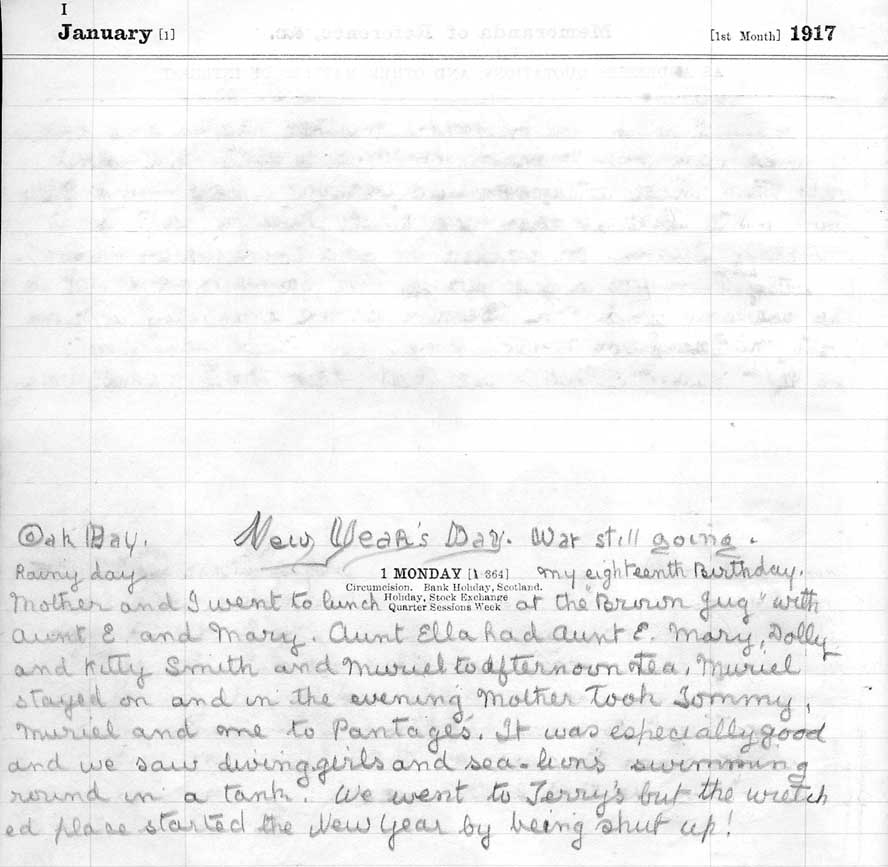 1
January [1] [1st Month] 1917
Oak Bay. New Year's Day. War still going.
Rainy day 1 MONDAY [1 364] My eighteenth Birthday.
Circumcision. Bank Holiday, Scotland.
Holiday, Stock Exchange
Quarter Sessions Week
Mother and I went to lunch at the "Brown Jug" with
Aunt E. and Mary. Aunt Ella had Aunt E. Mary, Dolly
and Kitty Smith and Muriel to afternoon tea, Muriel
stayed on and in the evening Mother took Tommy,
Muriel and me to Pantages. It was especially good
and we saw diving girls and sea-lions swimming
round in a tank. We went to Terry's but the wretch
ed place started the New Year by being shut up!